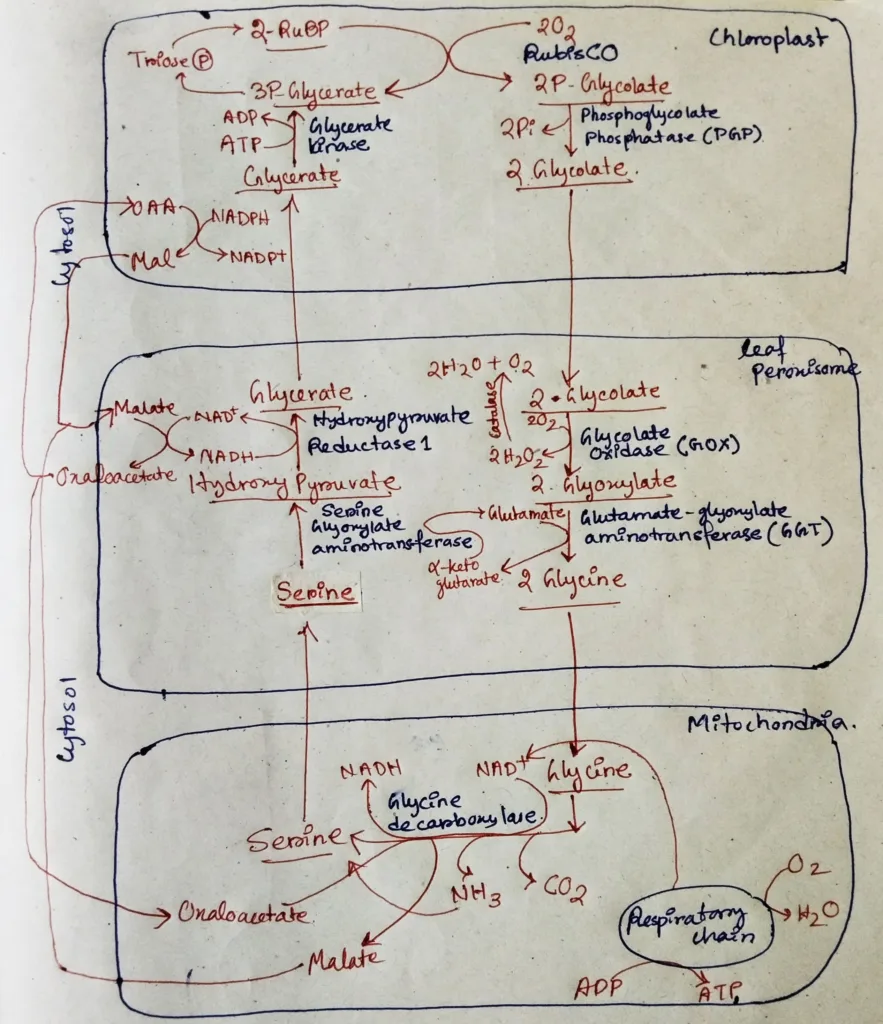 Chloroplast
2-RuBP
2O2
RubisCO
Triose P
3P-Glycerate
2P-Glycolate
ADP
ATP
Glycerate
kinase
2Pi
Phosphoglycolate
Phosphatase (PGP)
Glycerate
2 Glycolate.
Cytosol
OAA
NADPH
Mal
NADP+
leaf
Peroxisome
2H2O + O2
Catalase
Glycerate
2 • Glycolate
Malate
NAD+
Hydroxypyruvate
Reductase 1
2O2
Glycolate
Oxidase (GOX)
NADH
2H2O2
Oxaloacetate
Hydroxy Pyruvate
2 Glyoxylate
Serine
Glyoxylate
aminotransferase
Glutamate
Glutamate-glyoxylate
aminotransferase (GGT)
α-keto
glutarate
2 Glycine
Serine
Cytosol
Mitochondria.
NADH
NAD+
Glycine
Glycine
decarboxylase
Serine
NH3
CO2
O2
H2O
Oxaloacetate
Respiratory
chain
Malate
ADP
ATP